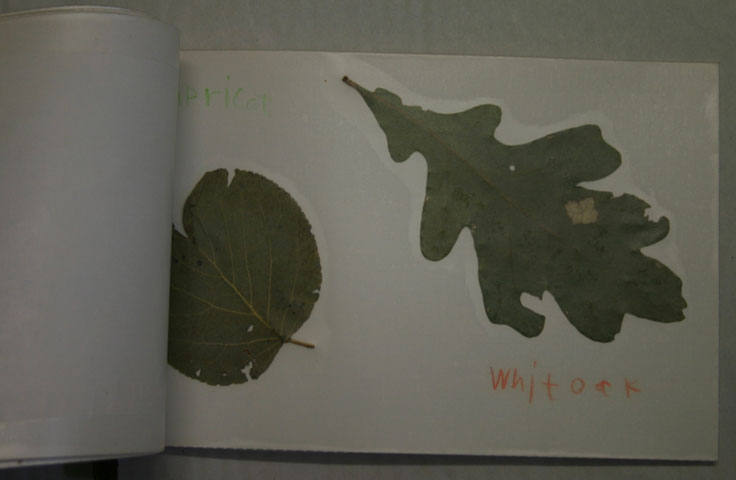 apricot
Whit oak